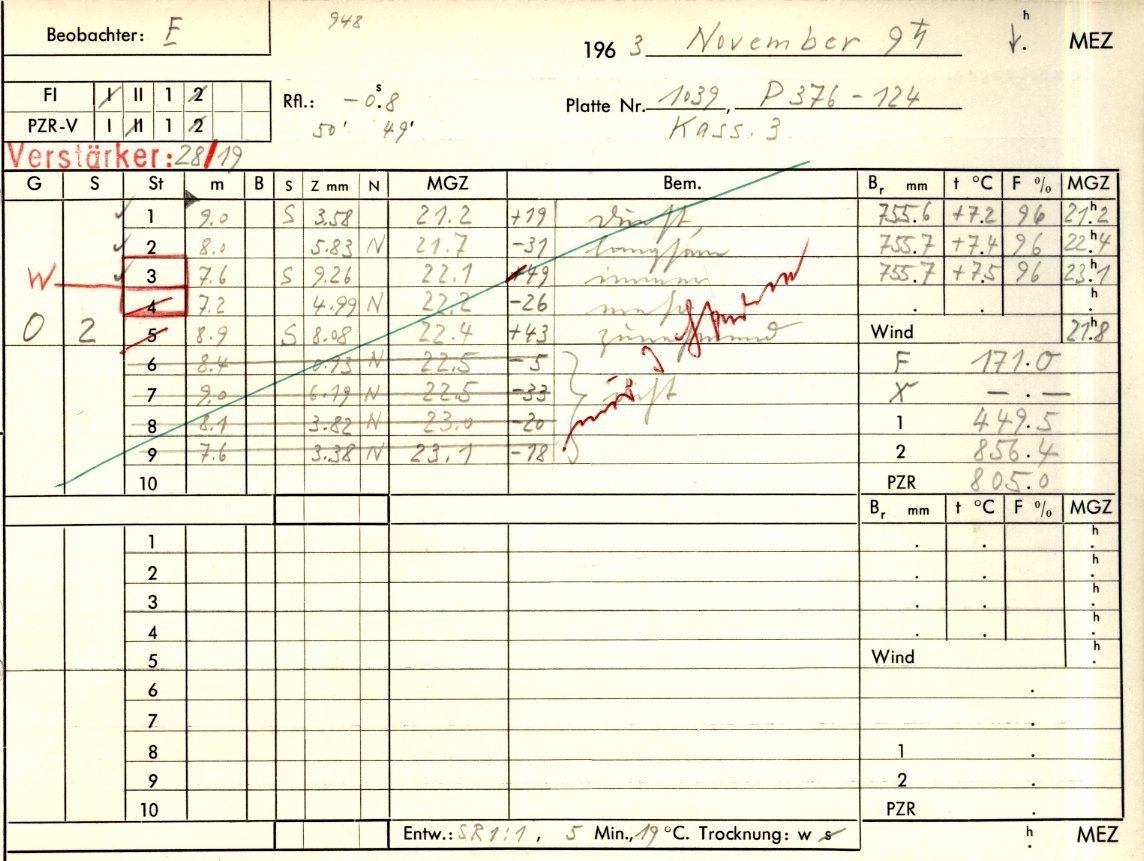 948
Beobachter: F
196 3 November 9 ♄ ↓. h MEZ
FI I II 1 2
PZR-V I II 1 2
Rfl.: -0.8 s
50' 49'
Platte Nr. 1039, P 376-124
Kass. 3
Verstärker: 28/19
G S St m B S Z mm N MGZ Bem. Br mm t °C F % MGZ
1 9.0 S 3.58 21.2 +19 Dunst 755.6 +7.2 96 21h2
2 8.0 5.83 N 21.7 -31 langsam 755.7 +7.4 96 22h4
W 3 7.6 S 9.26 22.1 +49 immer 755.7 +7.5 96 23h1
4 7.2 4.99 N 22.2 -26 mehr . . h
0 2 5 8.9 S 8.08 22.4 +43 zunehmend Wind 21h8
6 8.4 0.73 N 22.5 -5 F 171.0
7 9.0 6.19 N 22.5 -33 X -.-
8 8.1 3.82 N 23.0 -20 1 449.5
9 7.6 3.38 N 23.1 -18 2 856.4
10 PZR 805.0
nur 3 Spuren
Br mm t °C F % MGZ
1 . . h
2 . . h
3 . . h
4 . . h
5 Wind h
6 .
7 .
8 1 .
9 2 .
10 PZR .
Entw.: SR 1:1, 5 Min., 19 °C. Trocknung: w s h . MEZ